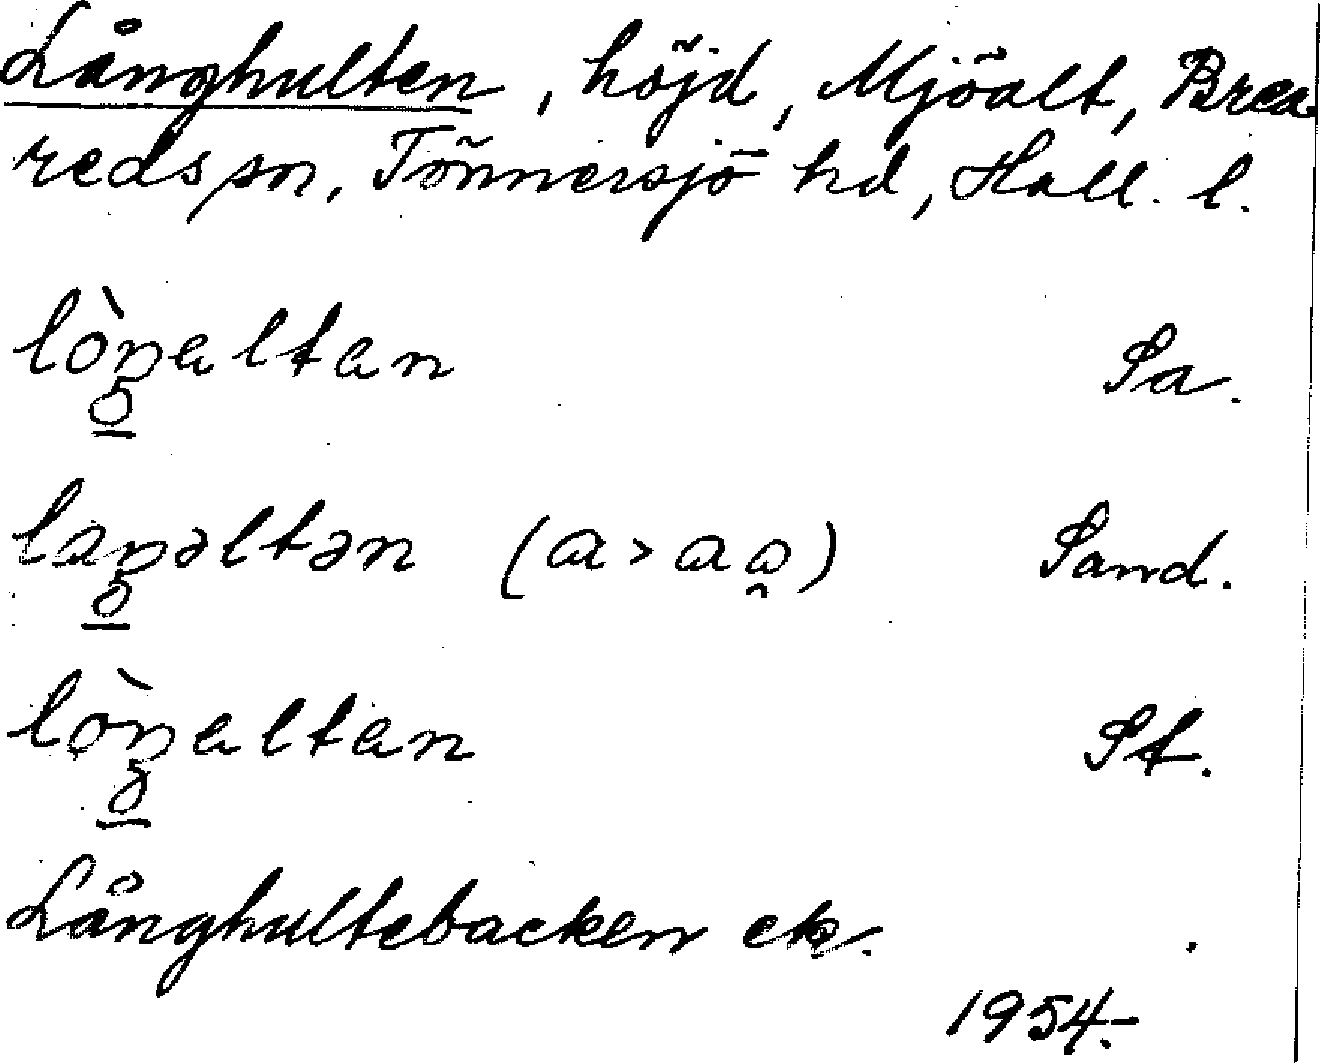 Långhulten, höjd, Mjöalt, Brea
reds sn, Tönnersjö hd, Hall. l.
lòŋaltan Sa.
laŋəltən (a > a a̯) Sand.
lòŋaltan St.
Långhultebacken ek.
1954.-